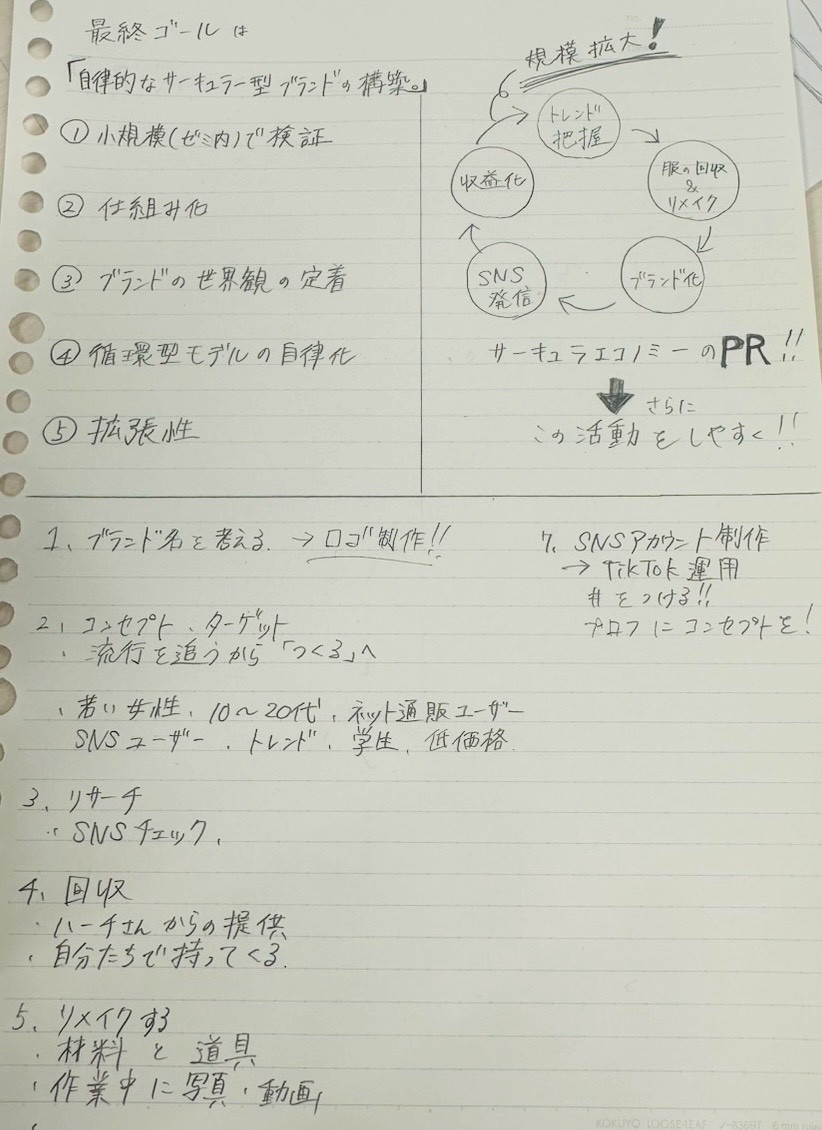 最終ゴールは
「自律的なサーキュラー型ブランドの構築。」
① 小規模(ゼミ内)で検証
② 仕組み化
③ ブランドの世界観の定着
④ 循環型モデルの自律化
⑤ 拡張性
規模拡大!
トレンド
把握
服の回収
&
リメイク
ブランド化
SNS
発信
収益化
サーキュラエコノミーのPR!!
さらに
この活動をしやすく!!
1、ブランド名を考える. → ロゴ制作!!
2、コンセプト、ターゲット
・流行を追うから「つくる」へ
・若い女性、10〜20代、ネット通販ユーザー
SNSユーザー、トレンド、学生、低価格.
3、リサーチ
・SNSチェック、
4、回収
・ハーチさんからの提供
・自分たちで持ってくる.
5、リメイクする
・材料と道具
・作業中に写真・動画
7、SNSアカウント制作
→ TikTok運用
#をつける!!
プロフにコンセプトを!
KOKUYO LOOSE-LEAF